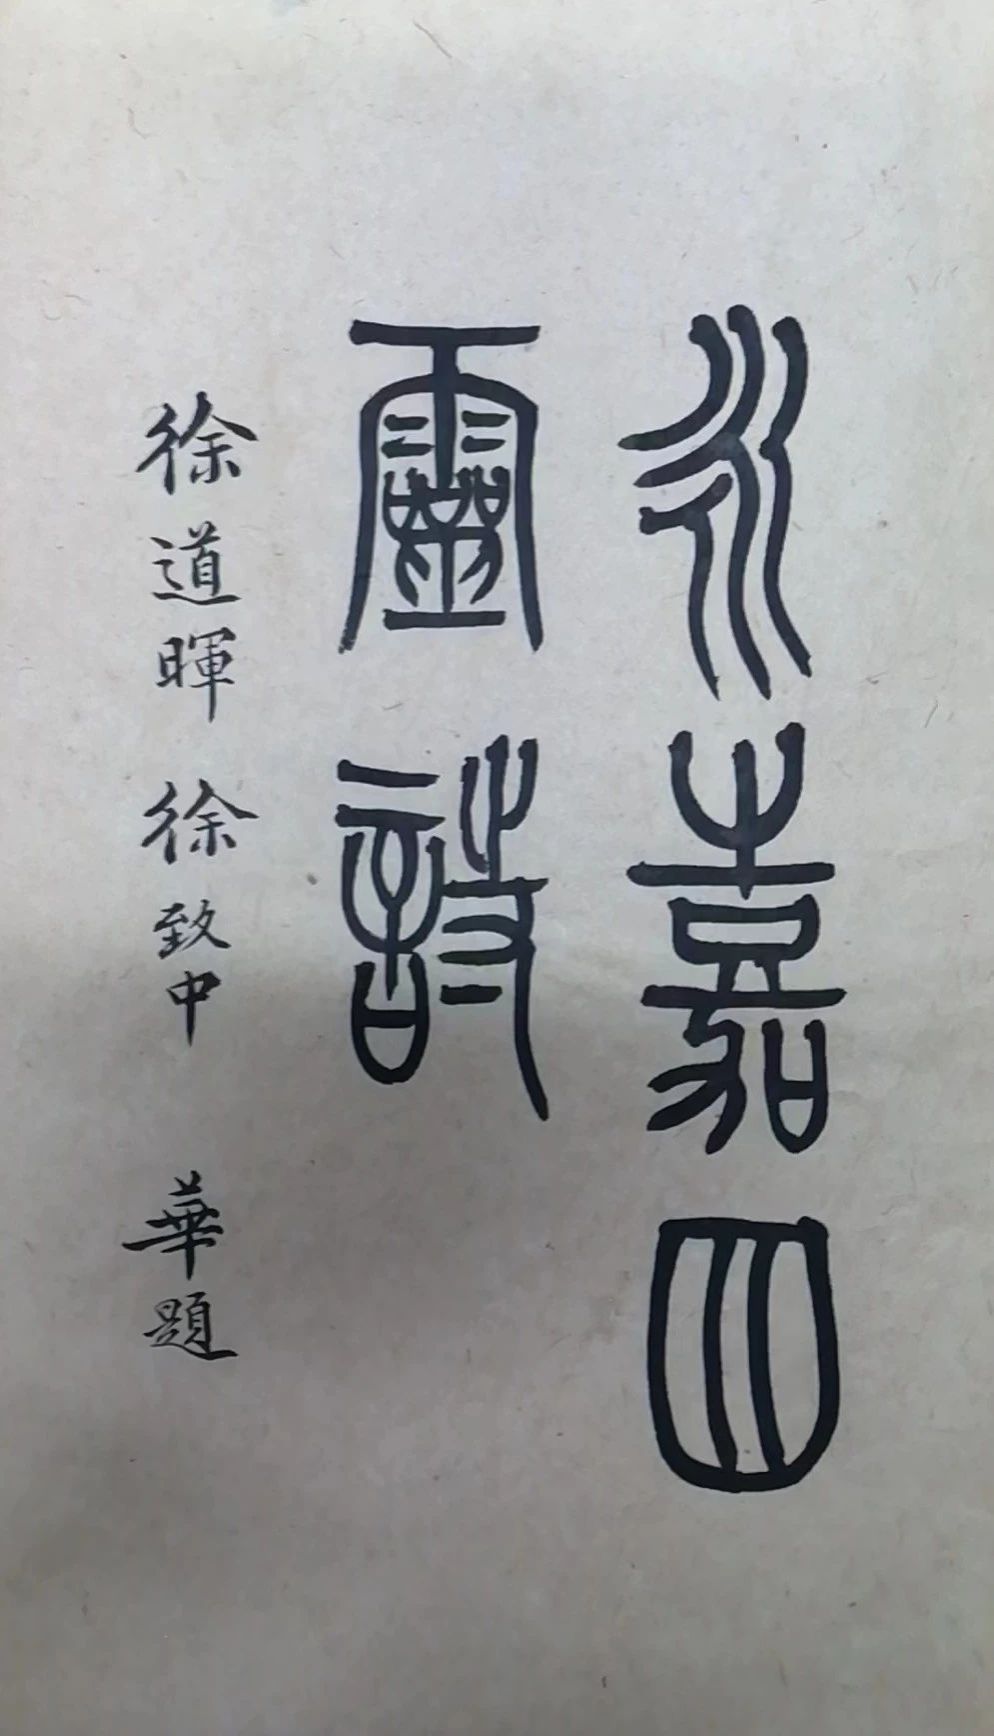 永嘉四
靈詩
徐道暉 徐致中 華題